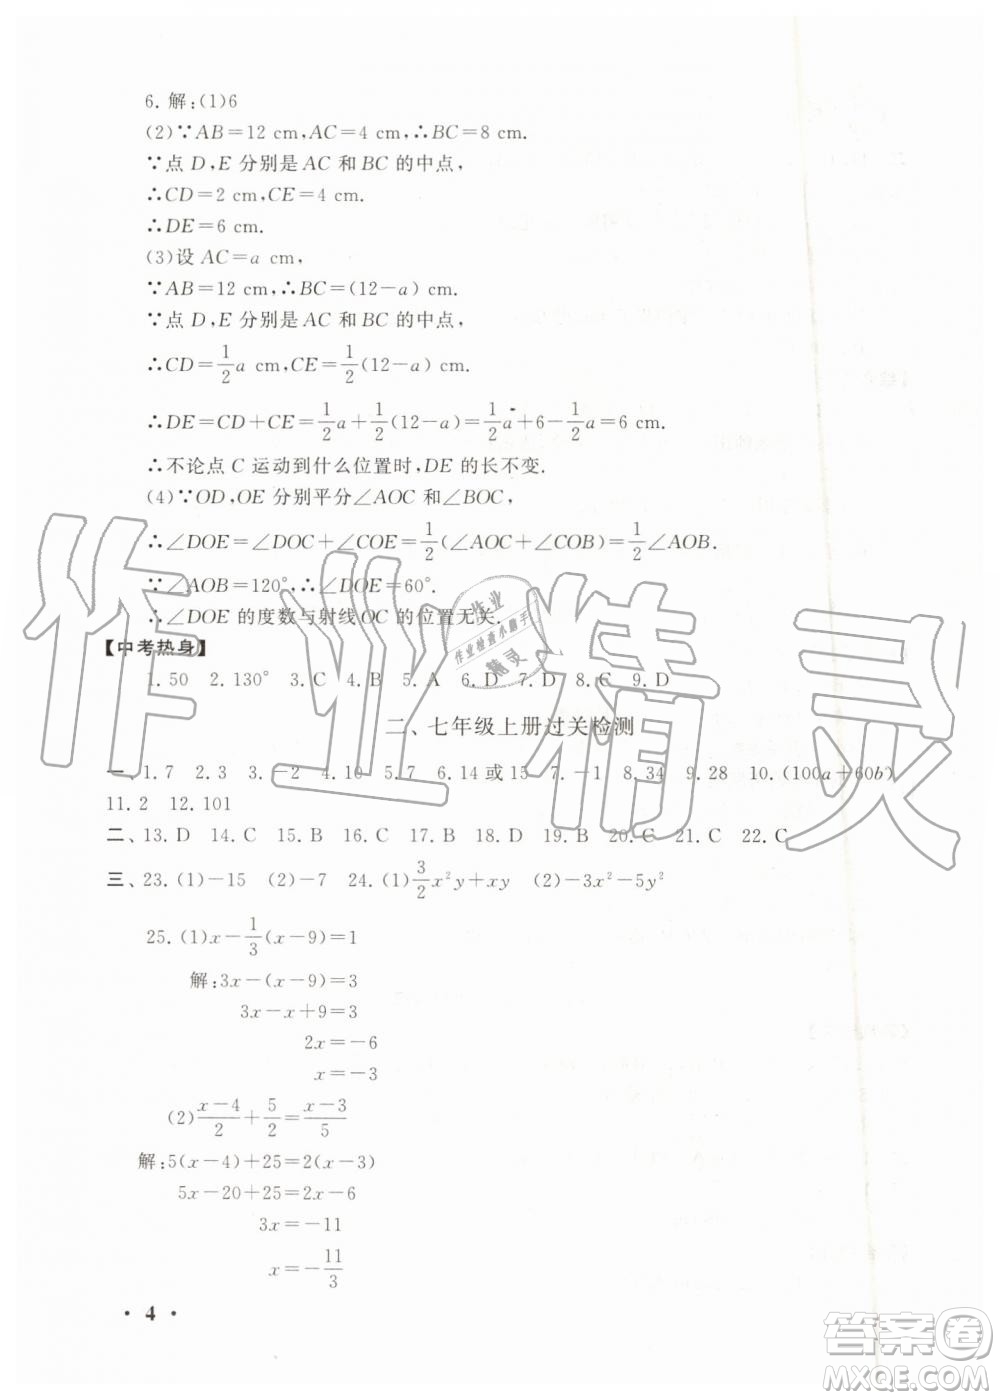 6. 解:(1)6
(2)∵AB=12 cm,AC=4 cm,∴BC=8 cm.
∵点 D,E 分别是 AC 和 BC 的中点,
∴CD=2 cm,CE=4 cm.
∴DE=6 cm.
(3)设 AC=a cm,
∵AB=12 cm,∴BC=(12-a) cm.
∵点 D,E 分别是 AC 和 BC 的中点,
∴CD=1/2 a cm,CE=1/2(12-a) cm.
∴DE=CD+CE=1/2 a+1/2(12-a)=1/2 a+6-1/2 a=6 cm.
∴不论点 C 运动到什么位置时,DE 的长不变.
(4)∵OD,OE 分别平分∠AOC 和∠BOC,
∴∠DOE=∠DOC+∠COE=1/2(∠AOC+∠COB)=1/2∠AOB.
∵∠AOB=120°,∴∠DOE=60°.
∴∠DOE 的度数与射线OC 的位置无关.
【中考热身】
1. 50 2. 130° 3. C 4. C 5. A 6. D 7. D 8. C 9. D
二、七年级上册过关检测
一、1. 7 2. 3 3. -2 4. 10 5. 7 6. 14 或 15 7. -1 8. 34 9. 28 10. (100a+60b)
11. 2 12. 101
二、13. D 14. C 15. B 16. C 17. B 18. D 19. B 20. C 21. C 22. C
三、23. (1)-15 (2)-7 24. (1)3/2 x²y+xy (2)-3x²-5y²
25. (1)x-1/3(x-9)=1
解:3x-(x-9)=3
3x-x+9=3
2x=-6
x=-3
(2)(x-4)/2+5/2=(x-3)/5
解:5(x-4)+25=2(x-3)
5x-20+25=2x-6
3x=-11
x=-11/3
· 4 ·
作业精灵
作业
作业检查小助手
精灵
答案圈
MXQE.COM